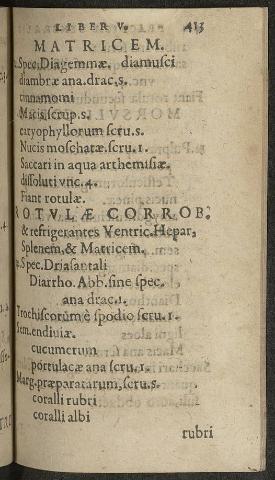 LIBER V. 413
MATRICEM.
Spec. Diagemmæ. diamusci
diambræ ana. drac, s.
cinnamomi
Macis, scrup. s.
caryophyllorum scru. s.
Nucis moschatæ, scru. 1.
Saccari in aqua arthemisiæ.
dissoluti vnc. 4.
Fiant rotulæ.
ROTVLÆ CORROB.
& refrigerantes Ventric. Hepar,
Splenem, & Matricem.
Spec. Driasantali
Diarrho. Abb. sine spec.
ana drac. 1.
Trochiscorum è spodio scru. 1.
Sem. endiuiæ.
cucumerum
portulacæ ana scru. 1.
Marg. præparatarum, scru. s.
coralli rubri
coralli albi
rubri